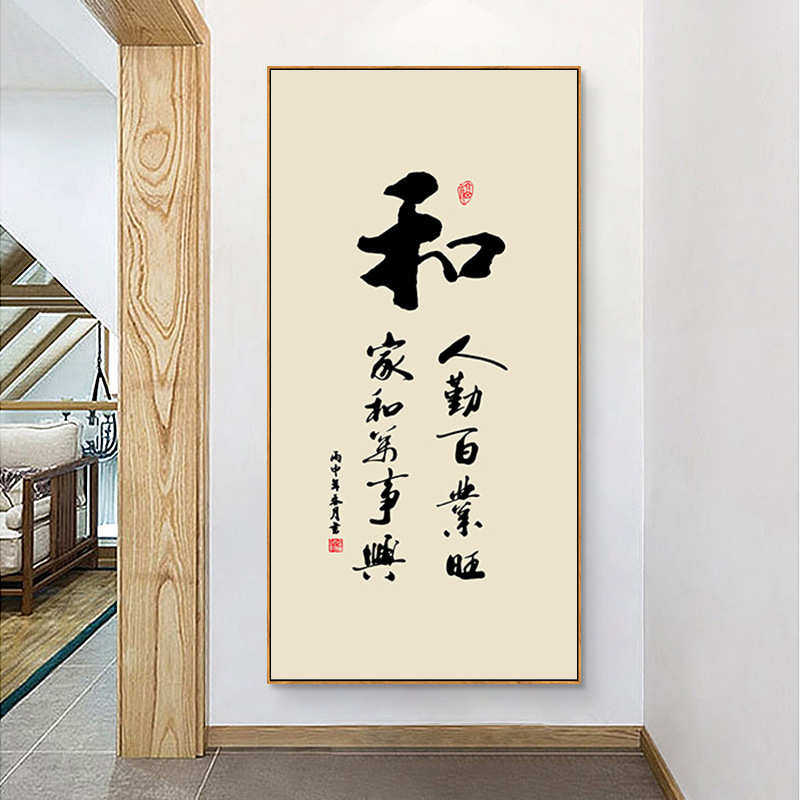 和
人勤百業旺
家和萬事興
丙申年春月書